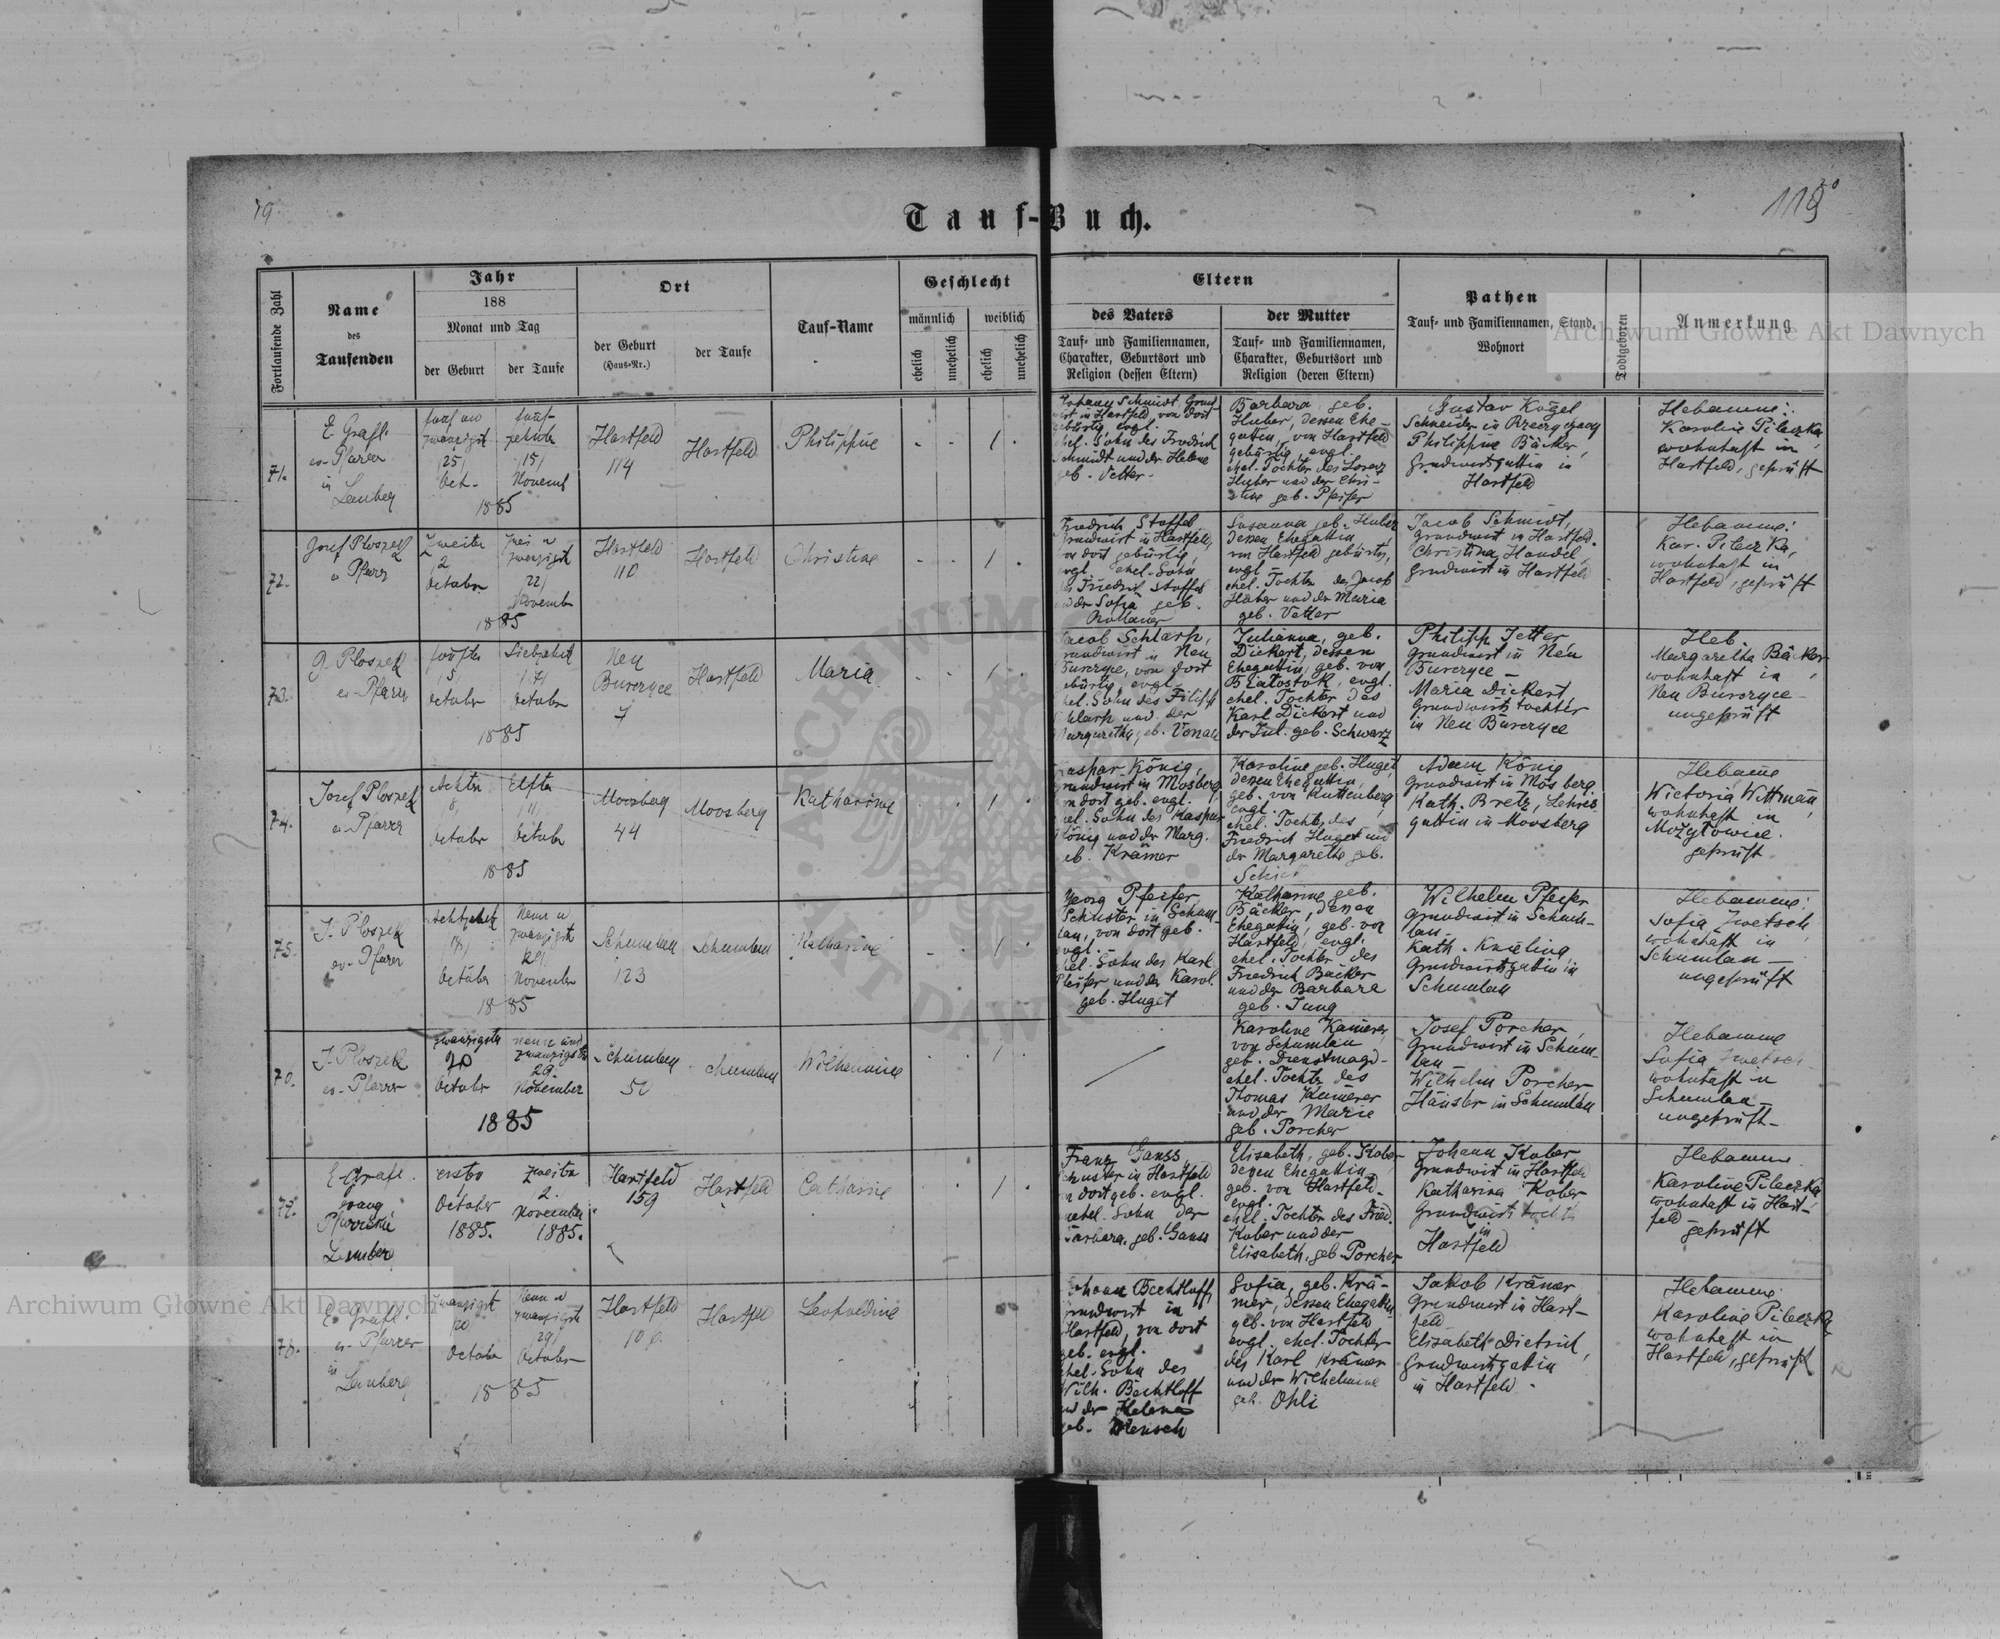 79.
1190
Tauf-Buch.
Fortlaufende Zahl
Name
des
Taufenden
Jahr
188
Monat und Tag
der Geburt
der Taufe
Ort
der Geburt
(Haus-Nr.)
der Taufe
Tauf-Name
Geschlecht
männlich
weiblich
ehelich
unehelich
ehelich
unehelich
Eltern
des Vaters
Tauf- und Familiennamen,
Charakter, Geburtsort und
Religion (dessen Eltern)
der Mutter
Tauf- und Familiennamen,
Charakter, Geburtsort und
Religion (deren Eltern)
Pathen
Tauf- und Familiennamen, Stand,
Wohnort
Todtgeboren
Anmerkung
71.
E. Grafl
ev. Pfarrer
in
Lemberg
zwanzigst
25
Oct.
15
Novemb
1885
Hartfeld
114
Hartfeld
Philippine
1
Johann Schmidt, Grund
wirt in Hartfeld, von dort
gebürtig, evgl.
ehel. Sohn des Friedrich
Schmidt und der Helene
geb. Vetter.
Barbara geb.
Huber, dessen Ehe-
gattin, von Hartfeld
gebürtig, evgl.
ehel. Tochter des Lorenz
Huber und der Chri-
stine geb. Pfeifer
Gustav Kogel
Schneider in
Philippine Bäcker,
Grundwirtsgattin in
Hartfeld
Hebamme:
Karoline Pileczka
wohnhaft in
Hartfeld, geprüft
72.
Josef Ploszek
ev. Pfarrer
Zweiter
2
October
zwei u
zwanzigst
22
November
1885
Hartfeld
110
Hartfeld
Christine
1
Friedrich Stoffel
Grundwirt in Hartfeld,
von dort gebürtig,
evgl. ehel. Sohn
des Friedrich Stoffel
und der Sofia geb.
Susanna geb. Huber
dessen Ehegattin,
von Hartfeld gebürtig,
evgl.
ehel. Tochter des Jacob
Huber und der Maria
geb. Vetter
Jacob Schmidt,
Grundwirt in Hartfeld.
Christina Handel
Grundwirt in Hartfeld
Hebamme:
Kar. Pileczka,
wohnhaft in
Hartfeld, geprüft
73.
J. Ploszek
ev. Pfarrer
fünfter
5
October
Siebzehnt
17
October
1885
Neu
Burczyce
7
Hartfeld
Maria
1
Jacob Schlarp,
Grundwirt in Neu
Burczyce, von dort
gebürtig, evgl.
ehel. Sohn des Filipp
Schlarp und der
Margaretha geb. Vonau
Julianna, geb.
Dickert, dessen
Ehegattin, geb. von
Białostok, evgl.
ehel. Tochter des
Karl Dickert und
der Jul. geb. Schwarz
Philipp Jetter
Grundwirt in Neu
Burczyce -
Maria Dickert,
Grundwirtstochter
in Neu Burczyce
Heb.
Margaretha Bäcker
wohnhaft in
Neu Burczyce -
ungeprüft
74.
Josef Ploszek
ev. Pfarrer
Achter
8
October
Elfter
11
October
1885
Moosberg
44
Moosberg
Katharine
1
Kaspar König,
Grundwirt in Mosberg
von dort geb. evgl.
ehel. Sohn des Kaspar
König und der Marg.
geb. Krämer
Karoline geb. Huget,
dessen Ehegattin,
geb. von Kuttenberg,
evgl.
ehel. Tocht. des
Friedrich Huget und
der Margarethe geb.
Adam König
Grundwirt in Mosberg
Kath. Bretz, Lehrers
gattin in Moosberg
Hebamme
Wictoria Wittmann,
wohnhaft in
Możyłowice.
geprüft
75.
J. Ploszek
ev. Pfarrer
Achtzehnt
18
October
Neun u
zwanzigste
29
November
1885
Schumlau
123
Schumlau
Katharine
1
Georg Pfeifer,
Schuster in Schum
lau, von dort geb.
evgl.
ehel. Sohn des Karl
Pfeifer und der Karol.
geb. Huget
Katharine geb.
Bäcker, dessen
Ehegattin, geb. von
Hartfeld, evgl.
ehel. Tochter des
Friedrich Bäcker
und der Barbara
geb. Jung
Wilhelm Pfeifer
Grundwirt in Schum-
lau -
Kath. Knieling
Grundwirtsgatin in
Schumlau
Hebamme:
Sofia Zwetsch
wohnhaft in
Schumlau -
ungeprüft
76.
J. Ploszek
ev. Pfarrer
zwanzigste
20
October
neun und
zwanzigste
29.
November
1885
Schumlau
50
Schumlau
Wilhelmine
1
Karoline Kamerer
von Schumlau
geb. Dienstmagd -
ehel. Tochter des
Thomas Kamerer
und der Marie
geb. Porcher
Josef Porcher,
Grundwirt in Schum-
lau
Wilhelm Porcher
Häusler in Schumlau
Hebamme
Sofia Zwetsch
wohnhaft in
Schumlau -
ungeprüft -
77.
E. Grafl.
evang
Pfarrer in
Lemberg
erster
October
1885.
zweiter
2.
November
1885.
Hartfeld
159
Hartfeld
Catharine
1
Franz Ganss
Schuster in Hartfeld
von dort geb. evgl.
unehel. Sohn der
Barbara, geb. Ganss
Elisabeth, geb. Kober
dessen Ehegattin
geb. von Hartfeld.
evgl.
ehel. Tochter des Fried.
Kober und der
Elisabeth, geb. Porcher
Johann Kober
Grundwirt in Hartfeld
Katharina Kober
Grundwirts tochter
in
Hartfeld
Hebamme
Karoline Pileczka,
wohnhaft in Hart-
feld -
geprüft
78.
E. Grafl.
ev. Pfarrer
in Lemberg
Zwanzigst
20
October
Neun u
zwanzigste
29
October
1885
Hartfeld
Hartfeld
Leopoldine
Johann Bechtloff,
Grundwirt in
Hartfeld, von dort
geb. evgl.
ehel. Sohn des
Wilh. Bechtloff
und der Helena
geb. Mensch
Sofia, geb. Krä-
mer, dessen Ehegattin
geb. von Hartfeld
evgl. ehel. Tochter
des Karl Krämer
und der Wilhelmine
geb. Ohli
Jakob Krämer
Grundwirt in Hart-
feld
Elisabeth Dietrich,
Grundwirtsgatin
in Hartfeld.
Hebamme:
Karoline Pileczka
wohnhaft in
Hartfeld, geprüft
Archiwum Główne Akt Dawnych
Archiwum Główne Akt Dawnych
ARCHIWUM
AKT DAWNYCH